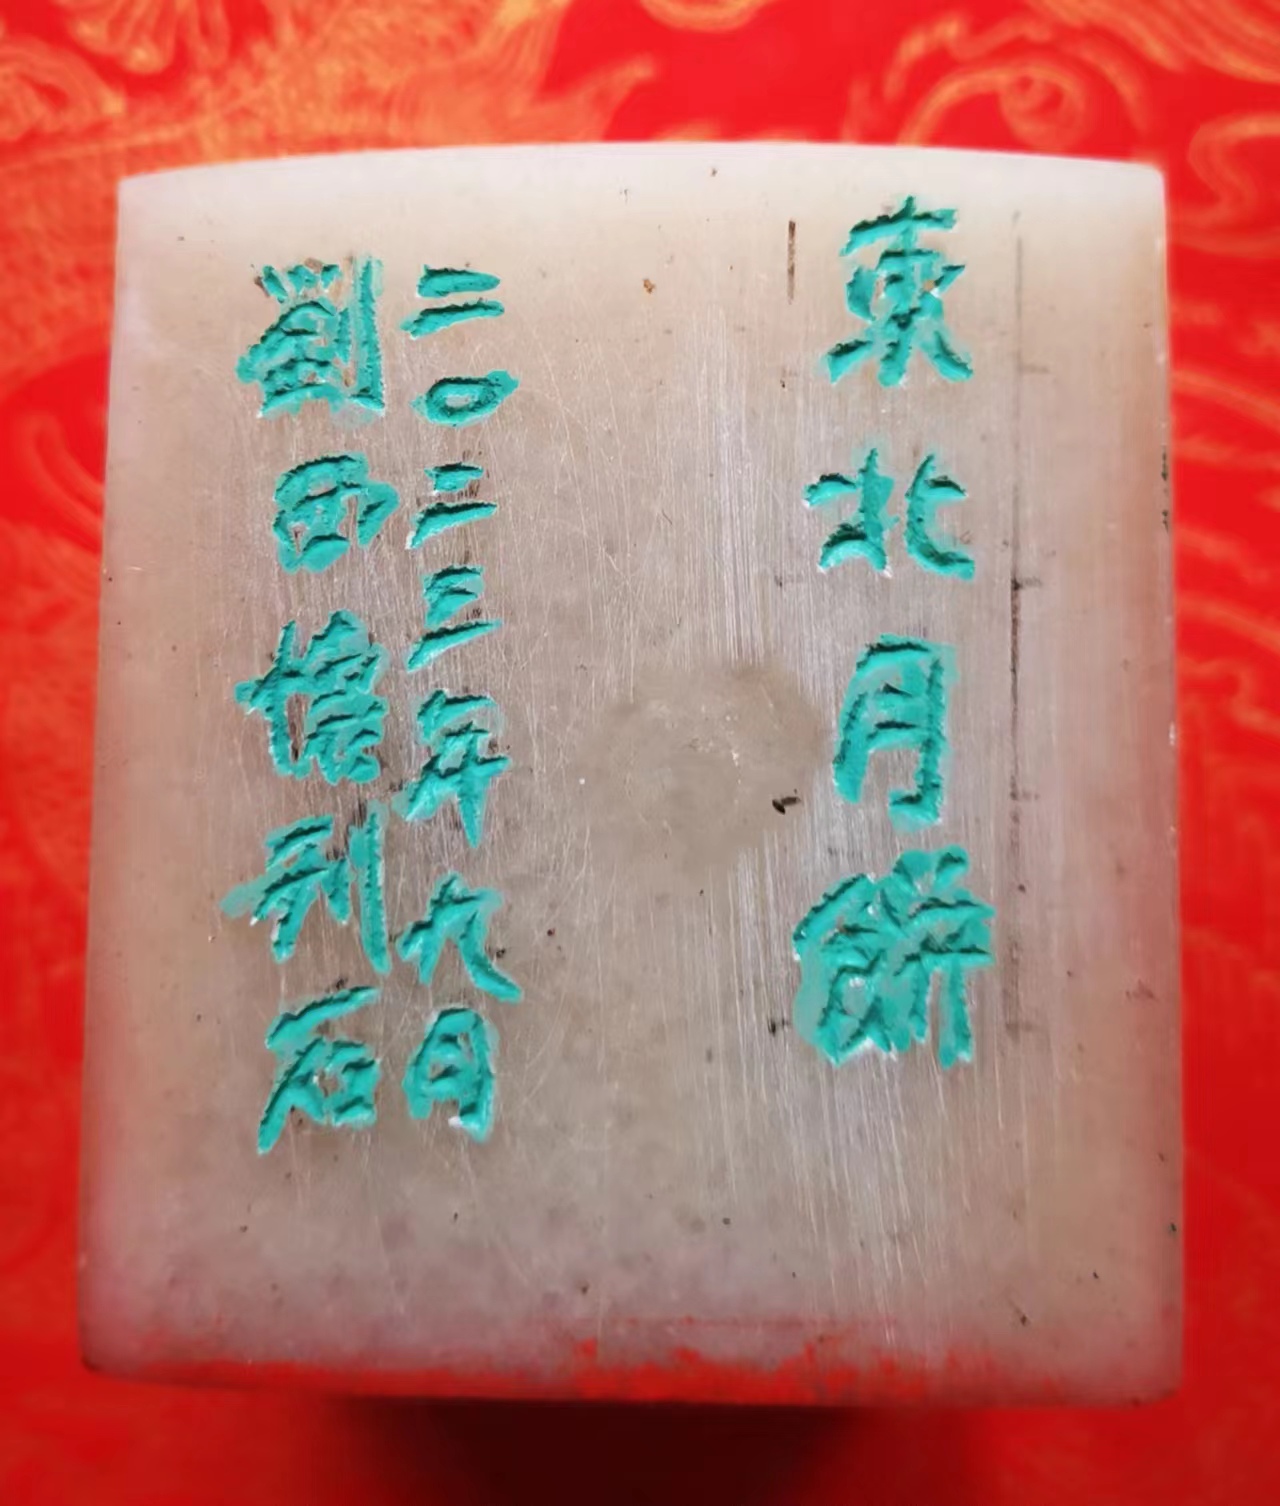 東北月餅
二〇二三年九月
劉西懷刊石